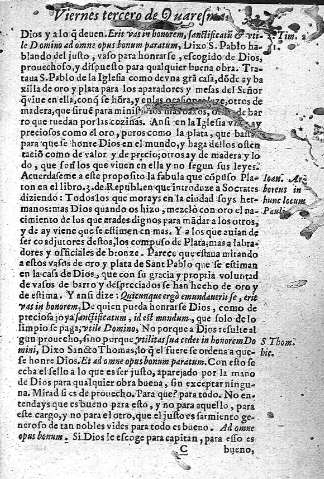 Viernes tercero de Quaresma
Dios y alo q̃ deuen. Erit vas in honorem, sanctificatũ & vti-
le Domino ad omne opus bonum paratum, Dixo S. Pablo ha-
blando del justo, vaso para honrarse, escogido de Dios,
prouechoso, y dispuesto para qualquier buena obra. Tra-
taua S. Pablo de la Iglesia como de vna grã casa, dõde ay ba
xilla de oro y plata para los aparadores y mesas del Señor
q̃ viue en ella, conq̃ se hõra, y en las otros de
madera, que sirue para
ro que ruedan por las cozinas. Ansi en la Iglesia
preciosos como el oro, puros como la plata, que
para que se honre Dios en el mundo, y haga dellos osten
tacio como de valor y de precio; otros ay de madera y lo
do, que son los que viuen en ella y no segun sus leyes.
Acuerdaseme a este proposito la fabula que cõpuso Pla-
ton en el libro. 3. de Republ. en que introduze a Socrates
diziendo: Todos los que morays en la ciudad soys her-
manos: mas Dios quando os hizo, mezclò con oro el na-
cimiento de los que crades dignos para mãdar a los otros,
y de ay viene que se estimen en mas. Y a los que auian de
ser coadjutores destos, los compuso de Plata; mas a labra-
dores y officiales de bronze. Parece que estaua mirando
a estos vasos de oro y plata de Sant Pablo que se estiman
en la casa de Dios, que con su gracia y propria voluntad
de vasos de barro y despreciados se han hecho de oro y
de estima. Y ansi dize: Quicumque ergo emundauerit se, erit
vas in honorem. De quien pueda honrarse Dios, como de
preciosa joya sanctificatum, id est mundum, que solo de lo
limpio se paga; vtile Domino. No porque a Dios resulte al
gun prouecho, sino porque vtilitas sua cedet in honorem Do
mini, Dixo Sancto Thomas, lo q̃ el fuere se ordena a que
se honre Dios. Et ad omne opus bonum paratum. Con esto se
echa el sello a lo que es ser justo, aparejado por la mano
de Dios para qualquier obra buena, sin exceptar ningu-
na. Mirad si es de prouecho. Para que? para todo. No en-
tendays que es bueno para esto, y no para aquello, para
este cargo, y no para el otro, que el justo es sarmiento ge-
neroso de tan nobles vides para todo es bueno. Ad omne
opus bonum. Si Dios le escoge para capitan, para esso es
C bueno,
2. Tim. 2
Ioan. Ar
borens in
hunc locum
Pauli
S Thom.
hic.